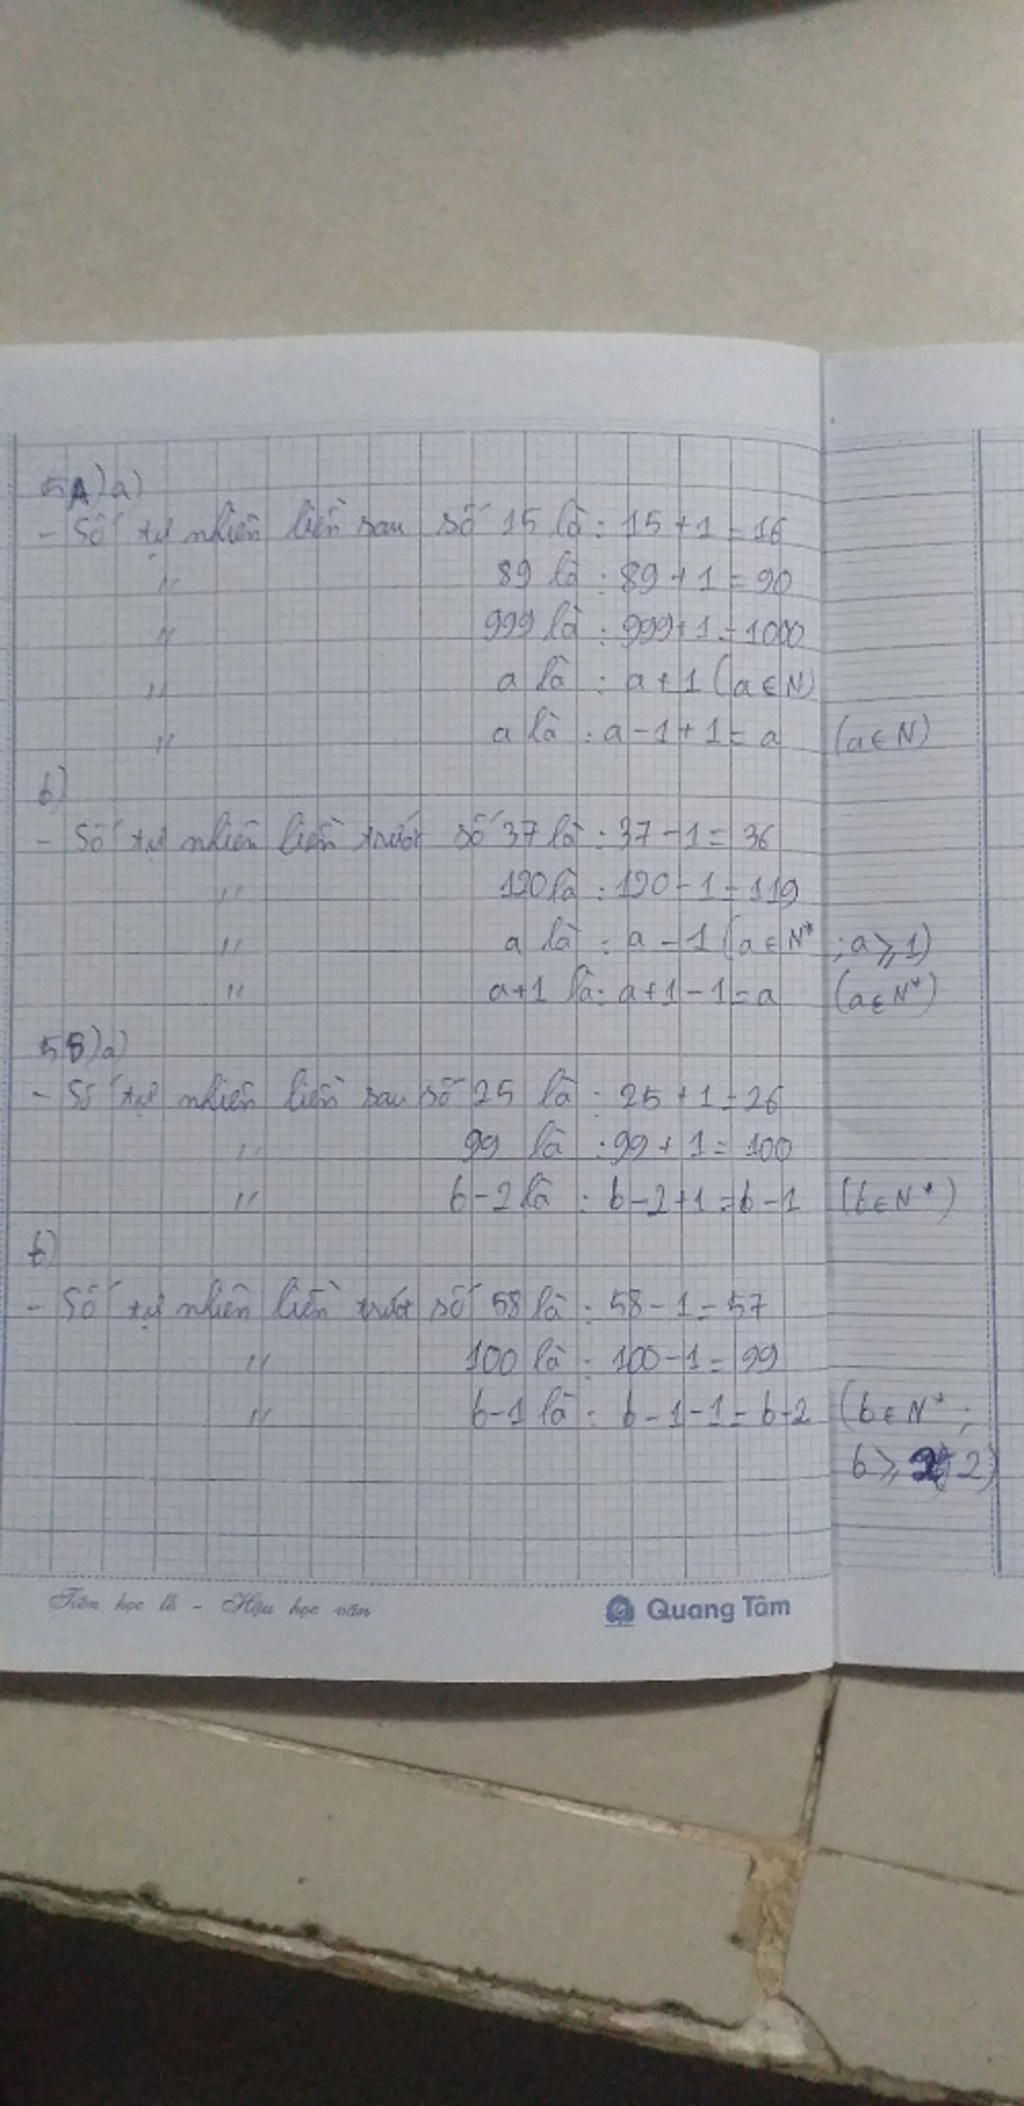 5A) a)
- Số tự nhiên liền sau số 15 là : 15 + 1 = 16
" 89 là : 89 + 1 = 90
" 999 là : 999 + 1 = 1000
" a là : a + 1 (a ∈ N)
" a là : a - 1 + 1 = a (a ∈ N)
b)
- Số tự nhiên liền trước số 37 là : 37 - 1 = 36
" 120 là : 120 - 1 = 119
" a là : a - 1 (a ∈ N* ; a ⩾ 1)
" a+1 là : a + 1 - 1 = a (a ∈ N*)
5B) a)
- Số tự nhiên liền sau số 25 là : 25 + 1 = 26
" 99 là : 99 + 1 = 100
" b - 2 là : b - 2 + 1 = b - 1 (b ∈ N*)
b)
- Số tự nhiên liền trước số 58 là : 58 - 1 = 57
" 100 là : 100 - 1 = 99
" b - 1 là : b - 1 - 1 = b - 2 (b ∈ N* ;
b ⩾ 2)
Tiên học lễ - Hậu học văn
Quang Tâm